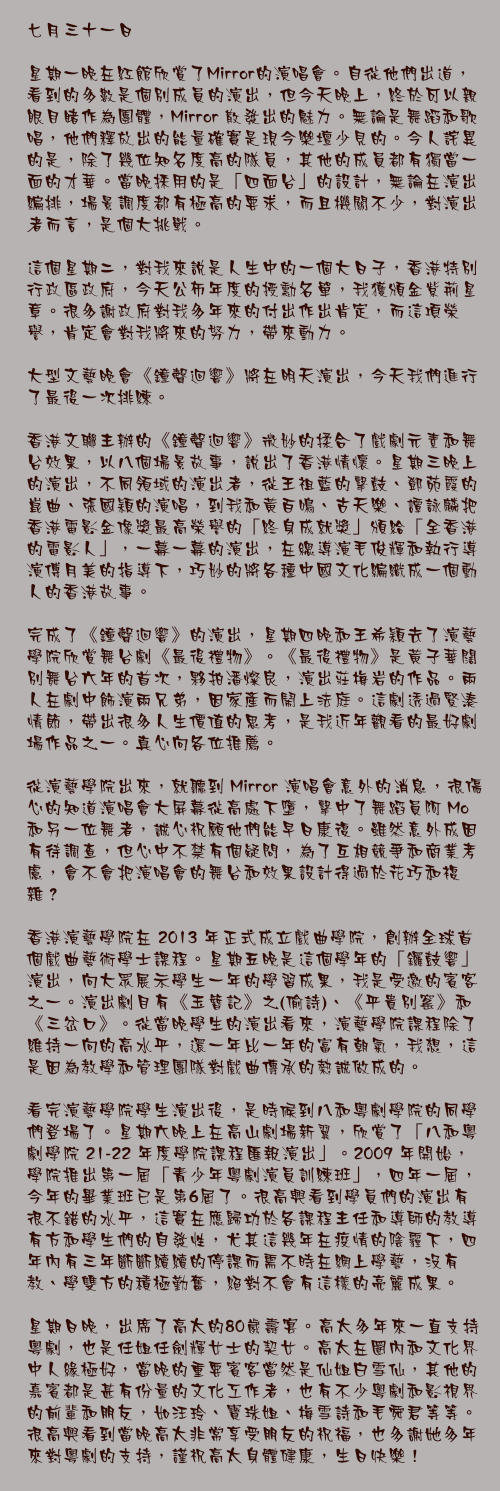 七月三十一日
星期一晚在紅館欣賞了Mirror的演唱會。自從他們出道，
看到的多數是個別成員的演出，但今天晚上，終於可以親
眼目睹作為團體，Mirror 散發出的魅力。無論是舞蹈和歌
唱，他們釋放出的能量確實是現今樂壇少見的。令人詫異
的是，除了幾位知名度高的隊員，其他的成員都有獨當一
面的才華。當晚採用的是「四面台」的設計，無論在演出
編排，場景調度都有極高的要求，而且機關不少，對演出
者而言，是個大挑戰。
這個星期二，對我來說是人生中的一個大日子，香港特別
行政區政府，今天公布年度的授勳名單，我獲頒金紫荊星
章。很多謝政府對我多年來的付出作出肯定，而這項榮
譽，肯定會對我將來的努力，帶來動力。
大型文藝晚會《鐘聲迴響》將在明天演出，今天我們進行
了最後一次排練。
香港文聯主辦的《鐘聲迴響》微妙的揉合了戲劇元素和舞
台效果，以八個場景故事，說出了香港情懷。星期三晚上
的演出，不同領域的演出者，從王祖藍的擊鼓、鄧宛霞的
崑曲、張國穎的演唱，到我和黃百鳴、古天樂、譚詠麟把
香港電影金像獎最高榮譽的「終身成就獎」頒給「全香港
的電影人」，一幕一幕的演出，在總導演毛俊輝和執行導
演傅月美的指導下，巧妙的將各種中國文化編織成一個動
人的香港故事。
完成了《鐘聲迴響》的演出，星期四晚和王希穎去了演藝
學院欣賞舞台劇《最後禮物》。《最後禮物》是黃子華闊
別舞台六年的首次，夥拍潘燦良，演出莊梅岩的作品。兩
人在劇中飾演兩兄弟，因家產而鬧上法庭。這劇透過緊湊
情節，帶出很多人生價值的思考，是我近年觀看的最好劇
場作品之一。真心向各位推薦。
從演藝學院出來，就聽到 Mirror 演唱會意外的消息，很傷
心的知道演唱會大屏幕從高處下墮，擊中了舞蹈員阿 Mo
和另一位舞者，誠心祝願他們能早日康復。雖然意外成因
有待調查，但心中不禁有個疑問，為了互相競爭和商業考
慮，會不會把演唱會的舞台和效果設計得過於花巧和複
雜？
香港演藝學院在 2013 年正式成立戲曲學院，創辦全球首
個戲曲藝術學士課程。星期五晚是這個學年的「鑼鼓響」
演出，向大眾展示學生一年的學習成果，我是受邀的賓客
之一。演出劇目有《玉簪記》之(偷詩)、《平貴別窰》和
《三岔口》。從當晚學生的演出看來，演藝學院課程除了
維持一向的高水平，還一年比一年的富有朝氣，我想，這
是因為教學和管理團隊對戲曲傳承的熱誠做成的。
看完演藝學院學生演出後，是時候到八和粵劇學院的同學
們登場了。星期六晚上在高山劇場新翼，欣賞了「八和粵
劇學院 21-22 年度學院課程匯報演出」。2009 年開始，
學院推出第一屆「青少年粵劇演員訓練班」，四年一屆，
今年的畢業班已是第6屆了。很高興看到學員們的演出有
很不錯的水平，這實在應歸功於各課程主任和導師的教導
有方和學生們的自發性，尤其這幾年在疫情的陰霾下，四
年內有三年斷斷續續的停課而需不時在網上學藝，沒有
教、學雙方的積極勤奮，絕對不會有這樣的亮麗成果。
星期日晚，出席了高太的80歲壽宴。高太多年來一直支持
粵劇，也是任姐任劍輝女士的契女。高太在圈內和文化界
中人緣極好，當晚的重要賓客當然是仙姐白雪仙，其他的
嘉賓都是甚有份量的文化工作者，也有不少粵劇和影視界
的前輩和朋友，如汪玲、寶珠姐、梅雪詩和毛舜君等等。
很高興看到當晚高太非常享受朋友的祝福，也多謝她多年
來對粵劇的支持，謹祝高太身體健康，生日快樂！